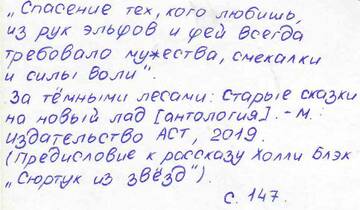 „Спасение тех, кого любишь,
из рук эльфов и фей всегда
требовало мужества, смекалки
и силы воли".
За тёмными лесами: старые сказки
на новый лад [антология]. - М.:
издательство АСТ, 2019.
(Предисловие к рассказу Холли Блэк
„Сюртук из звёзд").
с. 147.